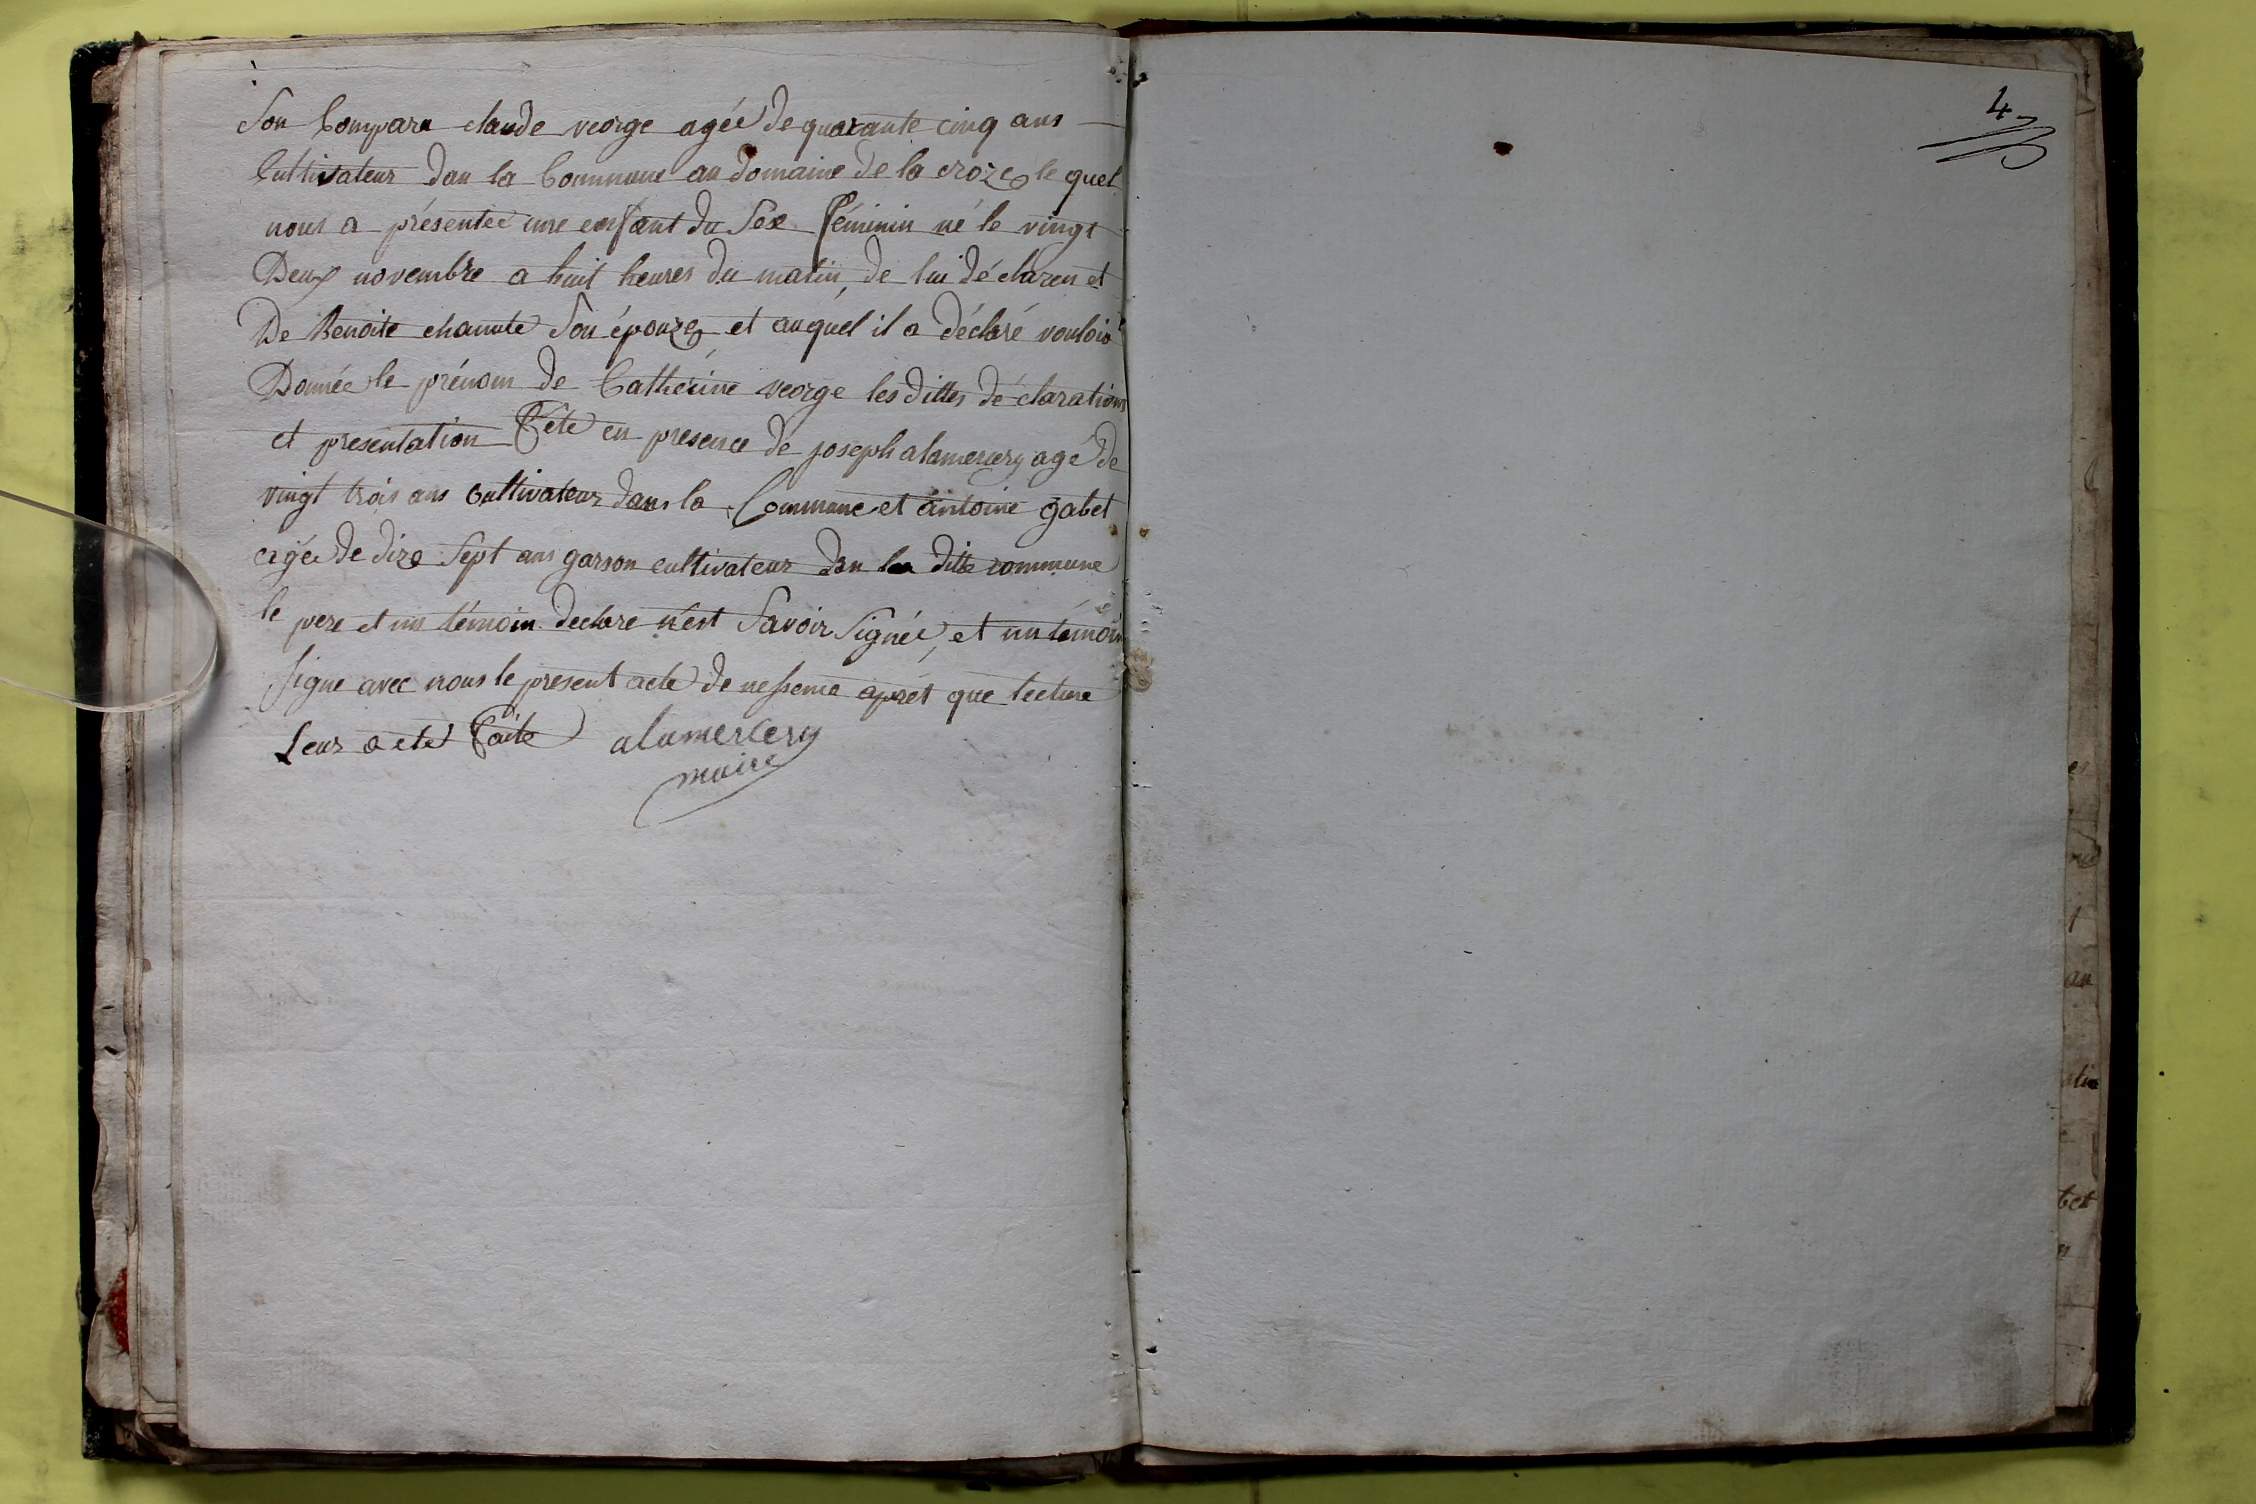 Son Compara claude veorge agée de quarante cinq ans
Cultivateur dan la Commune au domaine de la croze le quel
nous a présentée une enfant du Sex féminin né le vingt
Deux novembre a huit heures du matin, de lui déclaren et
De Benoite chanute Son épouze et auquel il a déclaré vouloir
Donnée le prénom de Catherine veorge les dittes déclarations
et presentation fete en presence de joseph alamercery agé de
vingt trois ans Cultivateur dans la Commune et antoine gabet
agée de dize Sept ans garson cultivateur dan la ditte commune
le pere et un témoin declare n'est Savoir Signée, et un témoin
Signe avec nous le present acte de nessence aprét que lecture
Leur a eté faite alamercery
maire
4
es
1
au
bet